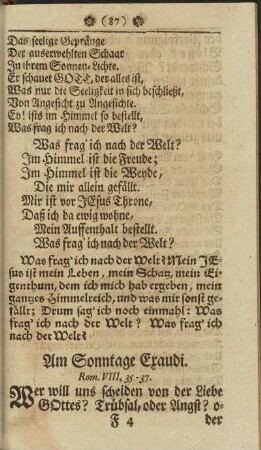 (87)
Das seelige Gepränge
Der auserwehlten Schaar
In ihrem Sonnen-Lichte.
Er schauet GOTT, der alles ist,
Was nur die Seeligkeit in sich beschließt,
Von Angesicht zu Angesichte.
Ey! ists im Himmel so bestellt,
Was frag ich nach der Welt?
Was frag' ich nach der Welt?
Im Himmel ist die Freude;
Im Himmel ist die Weyde,
Die mir allein gefällt.
Mir ist vor JEsus Throne,
Daß ich da ewig wohne,
Mein Auffenthalt bestellt.
Was frag' ich nach der Welt?
Was frag' ich nach der Welt? Mein JE-
sus ist mein Leben, mein Schatz, mein Ei-
genthum, dem ich mich hab ergeben, mein
gantzes Himmelreich, und was mir sonst ge-
fällt; Drum sag' ich noch einmahl: Was
frag' ich nach der Welt? Was frag' ich
nach der Welt?
Am Sonntage Exaudi.
Rom. VIII, 35-37.
Wer will uns scheiden von der Liebe
GOttes? Trübsal, oder Angst? o-
F 4 der